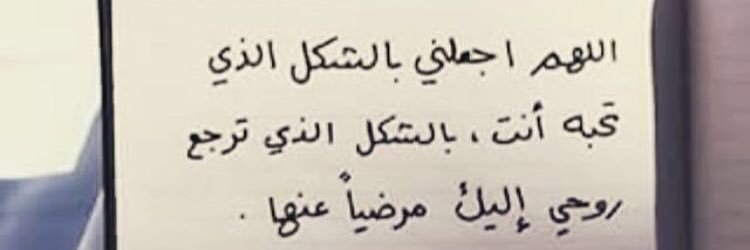 اللهم اجعلني بالشكل الذي
تحبه أنت، بالشكل الذي ترجع
روحي إليك مرضياً عنها.